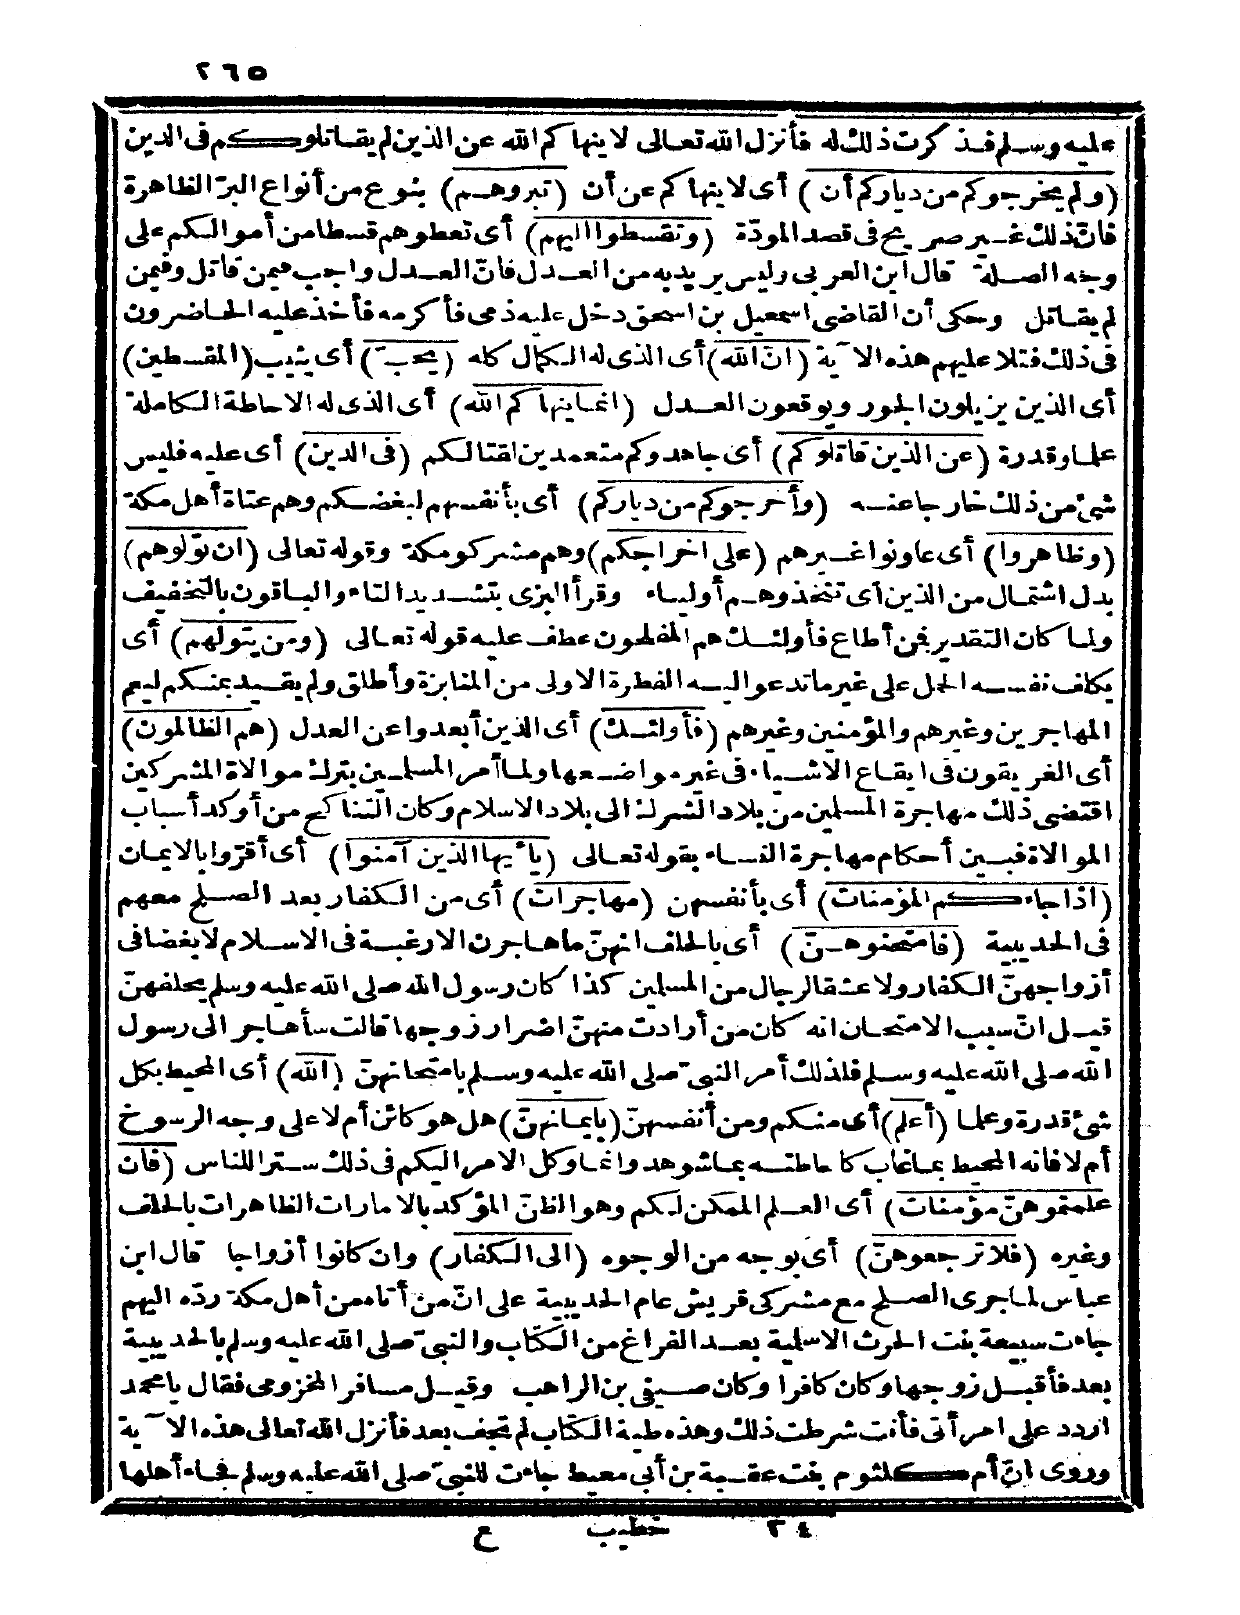 ٢٦٥
عليه وسلم فذكرت ذلك له فأنزل الله تعالى لا ينهاكم الله عن الذين لم يقاتلوكم في الدين
(ولم يخرجوكم من دياركم أن) أى لا ينهاكم عن أن (تبروهم) بنوع من أنواع البرّ الظاهرة
فانّ ذلك غير صريح فى قصد المودّة (وتقسطوا اليهم) أى تعطوهم قسطا من أموالكم على
وجه الصلة قال ابن العربى وليس يريد به من العدل فانّ العدل واجب فيمن قاتل وفيمن
لم يقاتل وحكى أن القاضى اسمعيل بن اسحق دخل عليه ذمى فأكرمه فأخذ عليه الحاضرون
فى ذلك فتلا عليهم هذه الآية (انّ الله) أى الذى له الكمال كله (يحبّ) أى يثيب (المقسطين)
أى الذين يزيلون الجور ويوقعون العدل (انما ينهاكم الله) أى الذى له الاحاطة الكاملة
علما وقدرة (عن الذين قاتلوكم) أى جاهدوكم متعمدين لقتالكم (فى الدين) أى عليه فليس
شئ من ذلك خارجا عنه (وأخرجوكم من دياركم) أى بأنفسهم لبغضكم وهم عتاة أهل مكة
(وظاهروا) أى عاونوا غيرهم (على اخراجكم) وهم مشركو مكة وقوله تعالى (ان تولوهم)
بدل اشتمال من الذين أى تتخذوهم أولياء وقرأ البزى بتشديد التاء والباقون بالتخفيف
ولما كان التقدير فمن أطاع فأولئك هم المفلحون عطف عليه قوله تعالى (ومن يتولهم) أى
يكلف نفسه الحمل على غير ما تدعو اليه الفطرة الاولى من المنابزة وأطلق ولم يقيد بمنكم ليعم
المهاجرين وغيرهم والمؤمنين وغيرهم (فأولئك) أى الذين أبعدوا عن العدل (هم الظالمون)
أى الغريقون فى ايقاع الاشياء فى غير مواضعها ولما أمر المسلمين بترك موالاة المشركين
اقتضى ذلك مهاجرة المسلمين من بلاد الشرك الى بلاد الاسلام وكان التناكح من أوكد أسباب
الموالاة فبين أحكام مهاجرة النساء بقوله تعالى (يا أيها الذين آمنوا) أى أقرّوا بالايمان
(اذا جاءكم المؤمنات) أى بأنفسهن (مهاجرات) أى من الكفار بعد الصلح معهم
فى الحديبية (فامتحنوهنّ) أى بالحلف انهنّ ما هاجرن الا رغبة فى الاسلام لا بغضا فى
أزواجهنّ الكفار ولا عشقا لرجال من المسلمين كذا كان رسول الله صلى الله عليه وسلم يحلفهنّ
قيل انّ سبب الامتحان انه كان من أرادت منهنّ اضرار زوجها قالت سأهاجر الى رسول
الله صلى الله عليه وسلم فلذلك أمر النبىّ صلى الله عليه وسلم بامتحانهنّ (الله) أى المحيط بكل
شئ قدرة وعلما (أعلم) أى منكم ومن أنفسهنّ (بايمانهنّ) هل هو كائن أم لا على وجه الرسوخ
أم لا فانه المحيط بما غاب كاحاطته بما شوهد وانما وكل الامر اليكم فى ذلك سترا للناس (فان
علمتموهنّ مؤمنات) أى العلم الممكن لكم وهو الظنّ المؤكد بالامارات الظاهرات بالحلف
وغيره (فلا ترجعوهنّ) أى بوجه من الوجوه (الى الكفار) وان كانوا أزواجا قال ابن
عباس لما جرى الصلح مع مشركى قريش عام الحديبية على انّ من أتاه من أهل مكة ردّه اليهم
جاءت سبيعة بنت الحرث الاسلمية بعد الفراغ من الكتاب والنبىّ صلى الله عليه وسلم بالحديبية
بعد فأقبل زوجها وكان كافرا وكان صيفى بن الراهب وقيل مسافر المخزومى فقال يا محمد
اردد على امرأتى فأنت شرطت ذلك وهذه طية الكتاب لم تجف بعد فأنزل الله تعالى هذه الآية
وروى انّ أم كلثوم بنت عقبة بن أبى معيط جاءت للنبىّ صلى الله عليه وسلم فجاء أهلها
٣٤ خطيب ع